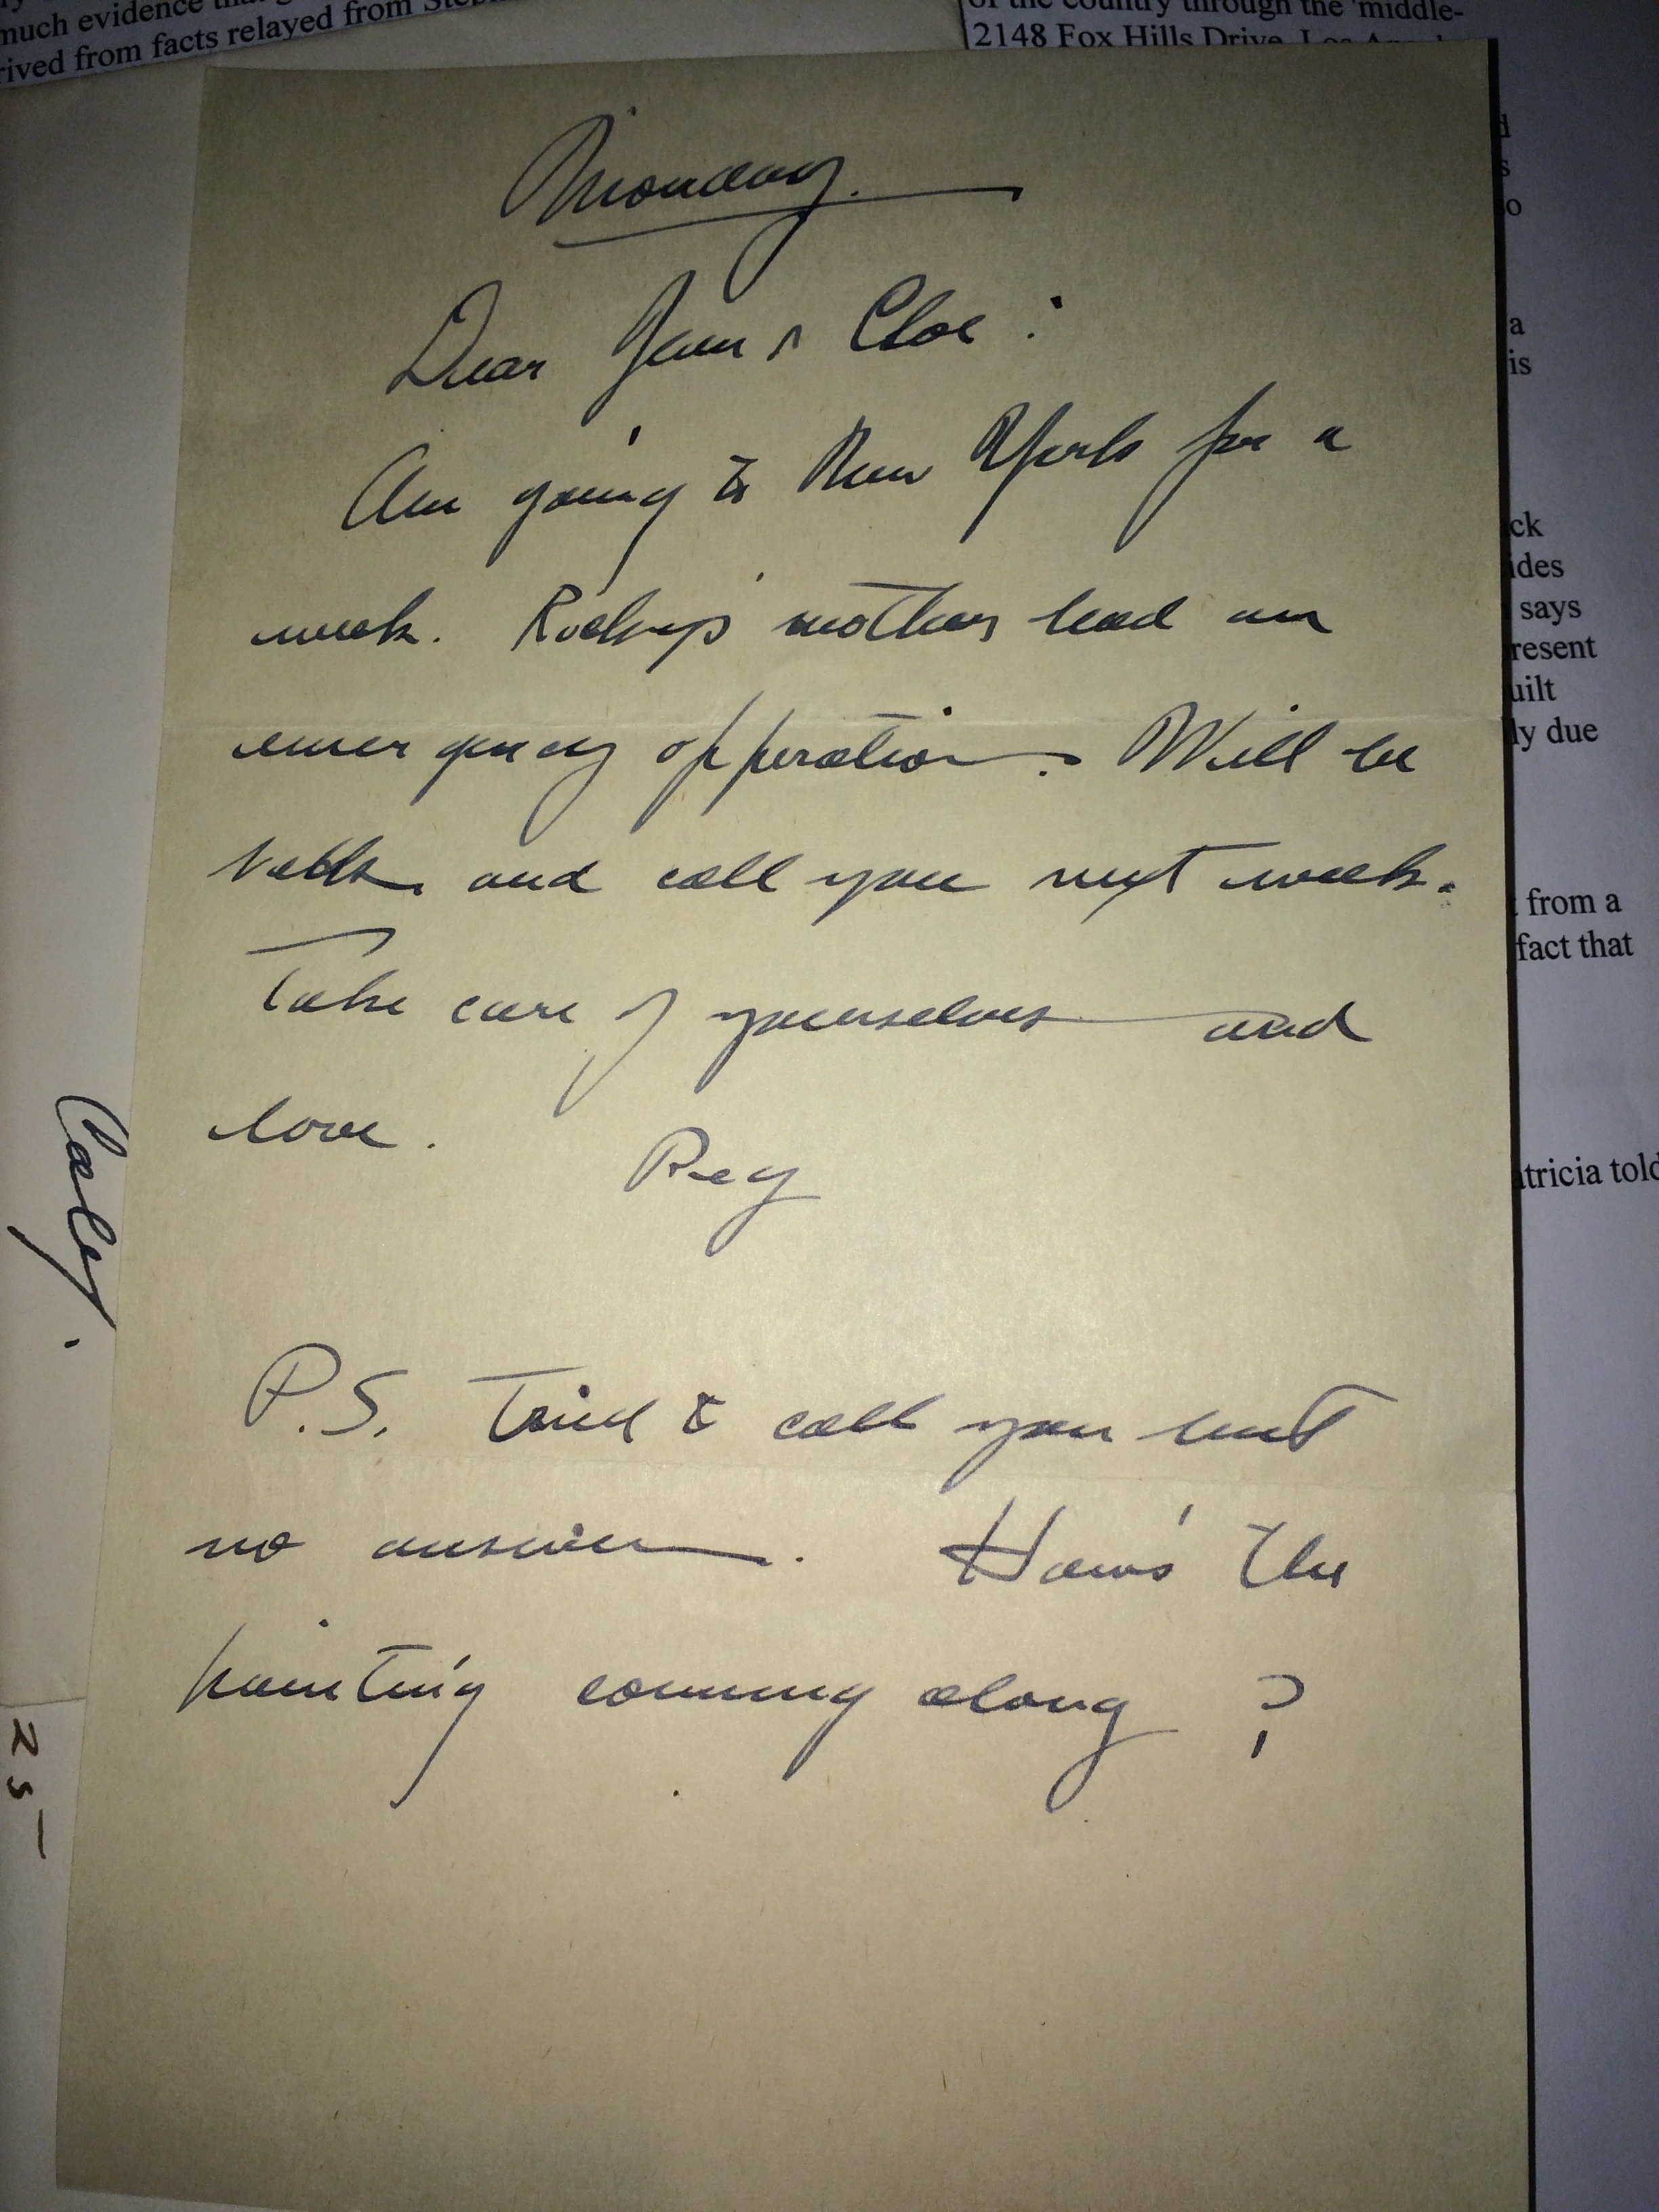 much evidence
rived from facts relayed from
of the country through the 'middle-
2148 Fox Hills Drive, Los
Monday.
Dear & Cloe:
Am going to New York for a
week. mother had an
emergency opperation. Will be
back and call you next week.
Take care of yourselves and
love.
Reg
P.S. Tried to call you but
no answer. How's the
painting comming along ?
a
is
ck
ides
says
resent
uilt
ly due
from a
fact that
atricia told
Caley.
25—